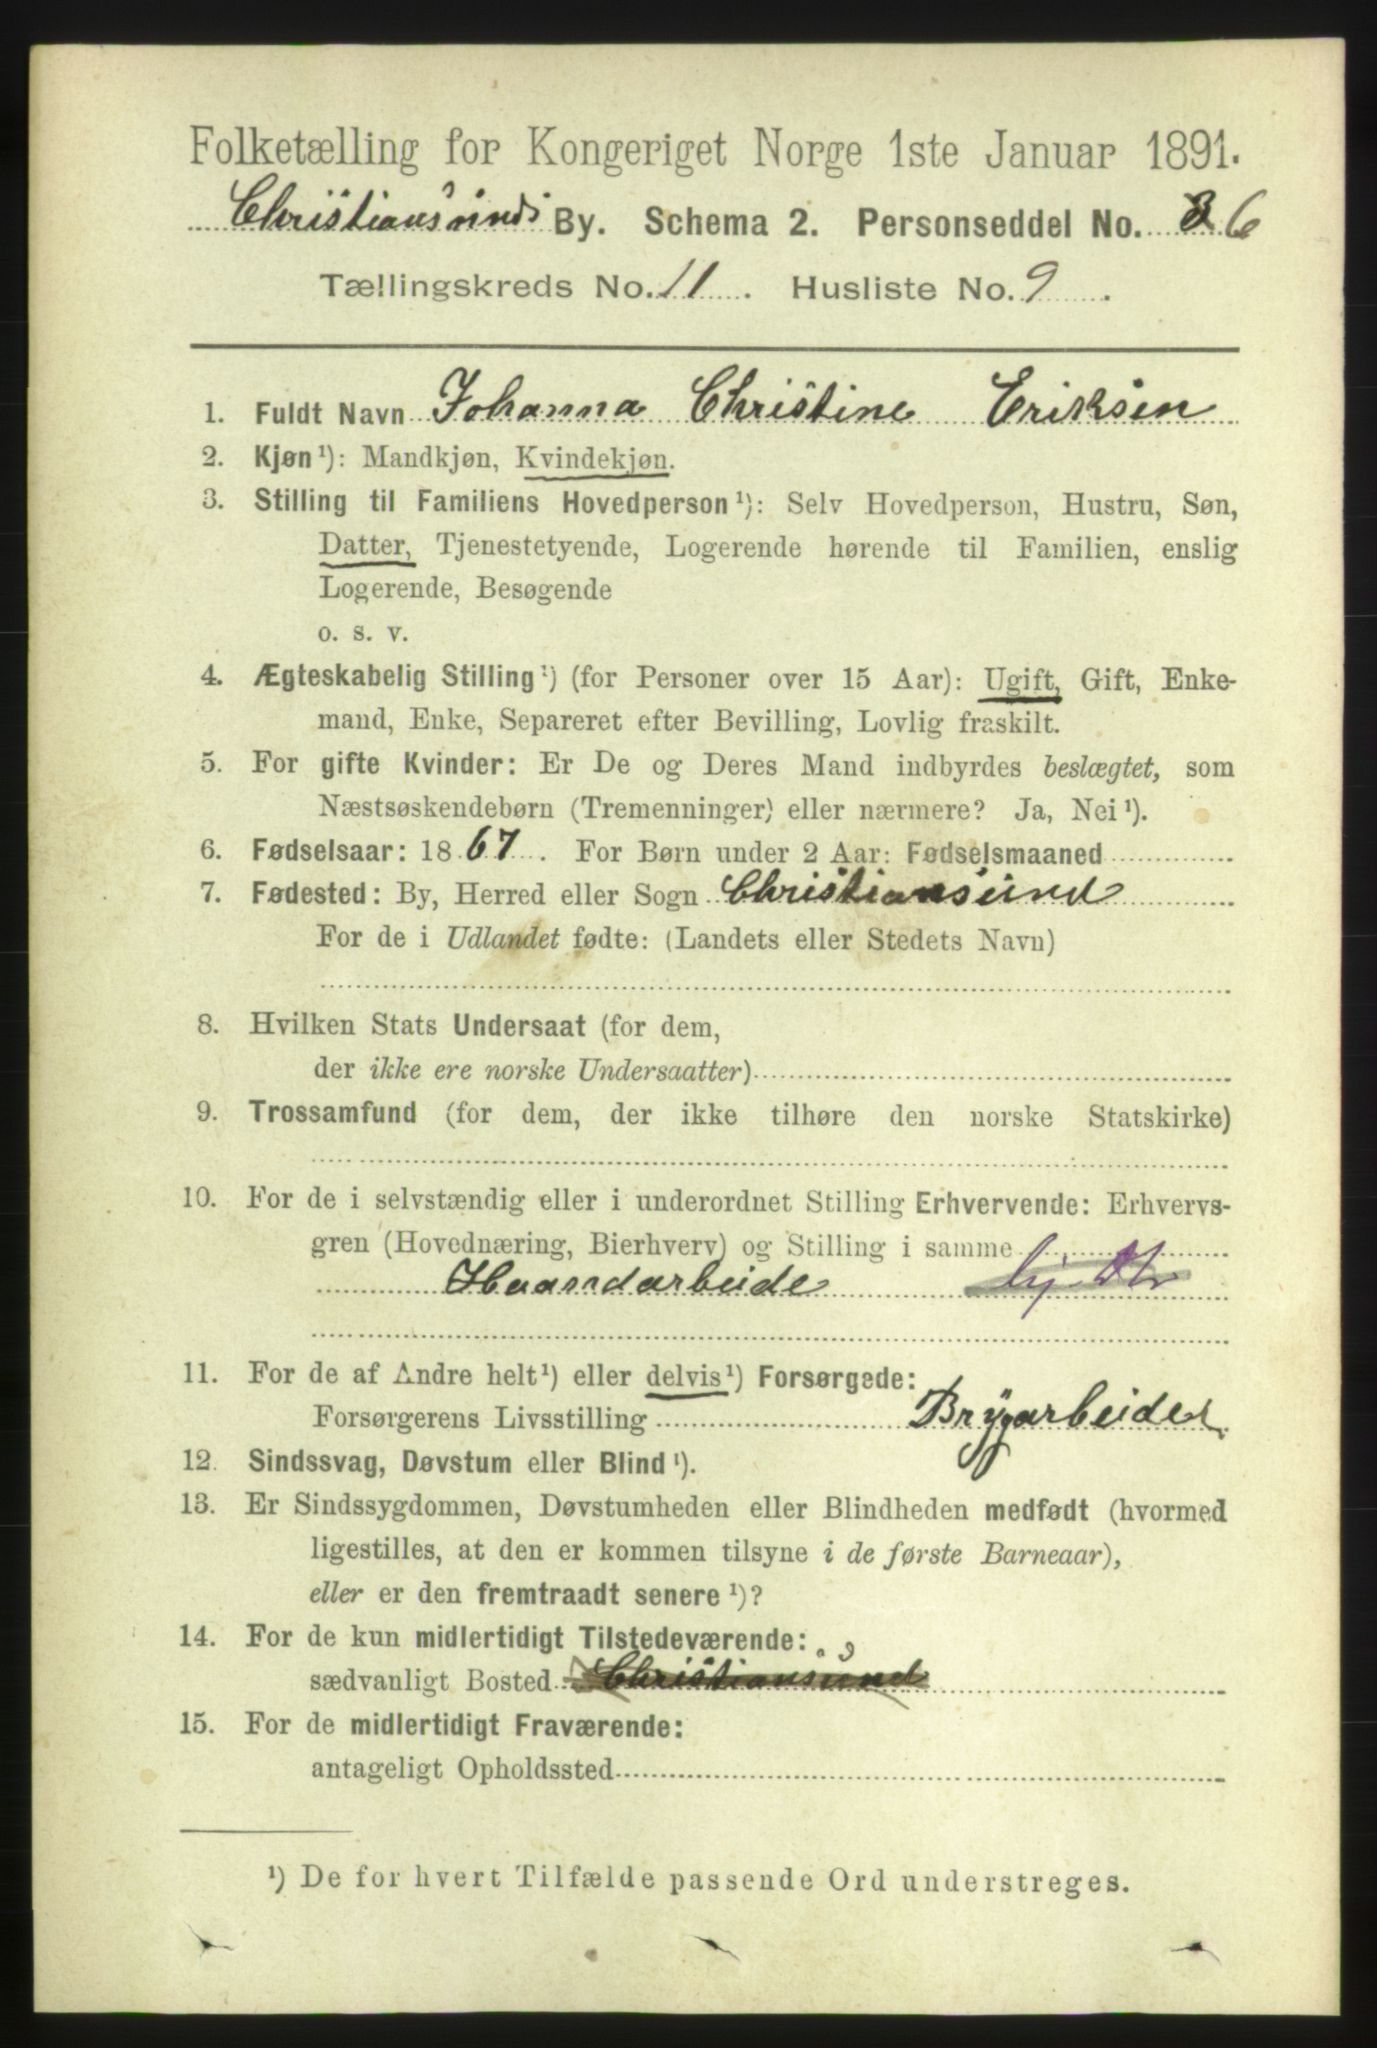 Folketælling for Kongeriget Norge 1ste Januar 1891.
Christiansunds By. Schema 2. Personseddel No. 6
Tællingskreds No. 11. Husliste No. 9.
1. Fuldt Navn Johanna Christine Eriksen
2. Kjøn¹): Mandkjøn, Kvindekjøn.
3. Stilling til Familiens Hovedperson¹): Selv Hovedperson, Hustru, Søn,
Datter, Tjenestetyende, Logerende hørende til Familien, enslig
Logerende, Besøgende
o. s. v.
4. Ægteskabelig Stilling¹) (for Personer over 15 Aar): Ugift, Gift, Enke-
mand, Enke, Separeret efter Bevilling, Lovlig fraskilt.
5. For gifte Kvinder: Er De og Deres Mand indbyrdes beslægtet, som
Næstsøskendebørn (Tremenninger) eller nærmere? Ja, Nei¹).
6. Fødselsaar: 1867. For Børn under 2 Aar: Fødselsmaaned
7. Fødested: By, Herred eller Sogn Christiansund
For de i Udlandet fødte: (Landets eller Stedets Navn)
8. Hvilken Stats Undersaat (for dem,
der ikke ere norske Undersaatter)
9. Trossamfund (for dem, der ikke tilhøre den norske Statskirke)
10. For de i selvstændig eller i underordnet Stilling Erhvervende: Erhvervs-
gren (Hovednæring, Bierhverv) og Stilling i samme
Haandarbeide
11. For de af Andre helt¹) eller delvis¹) Forsørgede:
Forsørgerens Livsstilling Brygarbeider
12. Sindssvag, Døvstum eller Blind¹).
13. Er Sindssygdommen, Døvstumheden eller Blindheden medfødt (hvormed
ligestilles, at den er kommen tilsyne i de første Barneaar),
eller er den fremtraadt senere¹)?
14. For de kun midlertidigt Tilstedeværende:
sædvanligt Bosted Christiansund
15. For de midlertidigt Fraværende:
antageligt Opholdssted
¹) De for hvert Tilfælde passende Ord understreges.